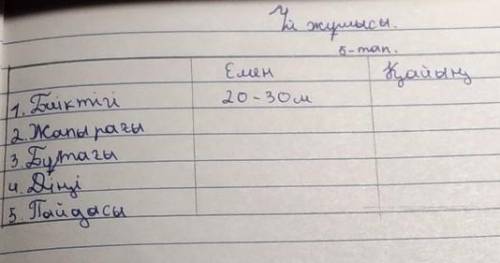 Үй жұмысы.
5-тап.
Емен Қайың
1. Биіктігі 20-30м
2. Жапырағы
3. Бұтағы
4. Діңі
5. Пайдасы